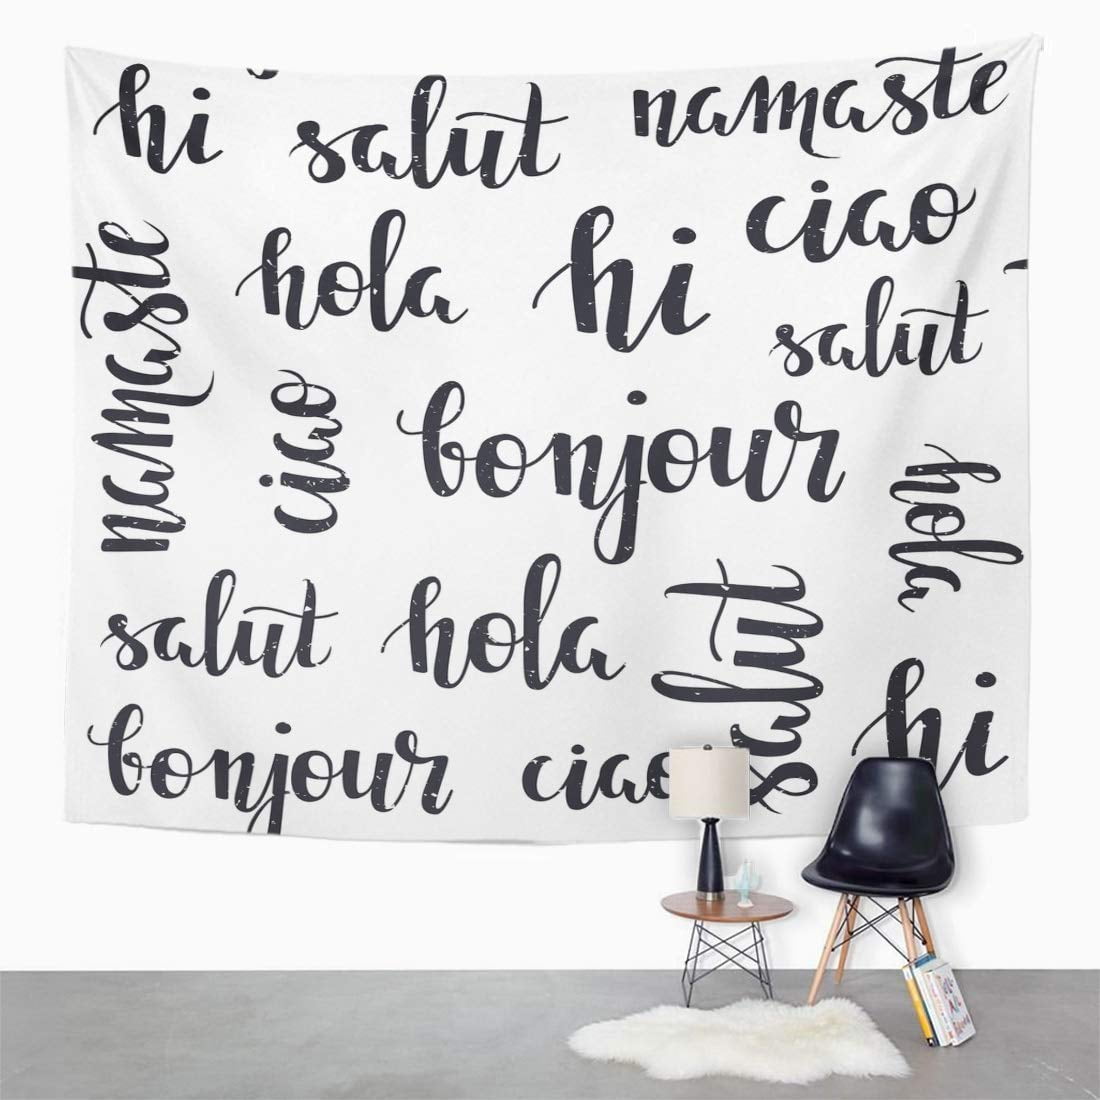 hi
salut
namaste
ciao
hola
hi
salut
namaste
ciao
bonjour
hola
salut
hola
salut
hi
bonjour
ciao